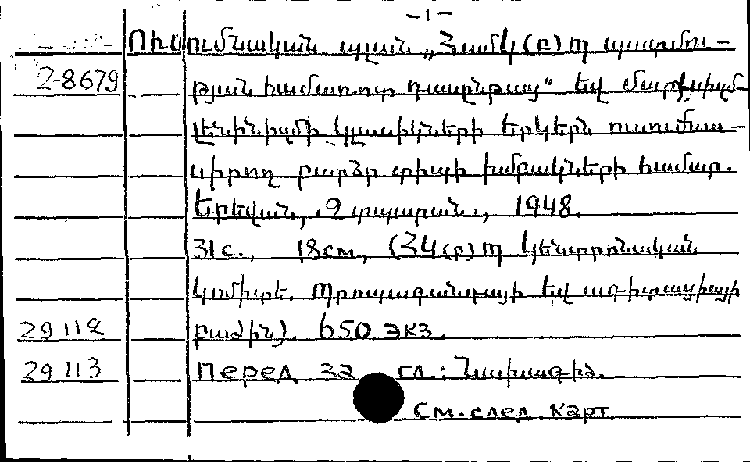 -1-
Ուսումնական պլան „Համկ(բ)պ պատմու-
2-8679 թյան համառոտ դասընթաց" եվ մարքսիզմ-
լենինիզմի կլասիկների երկերն ուսումնա-
սիրող բարձր տիպի խմբակների համար.
Երեվան, . 2 տպարան., 1948.
31с., 18см, (ՀԿ(բ)պ կենտրոնական
կոմիտե. Պրոպագանդայի եվ ագիտացիայի
29112 բաժին). 650 экз.
29113 Перед за гл: Նախագիծ.
См. след. карт